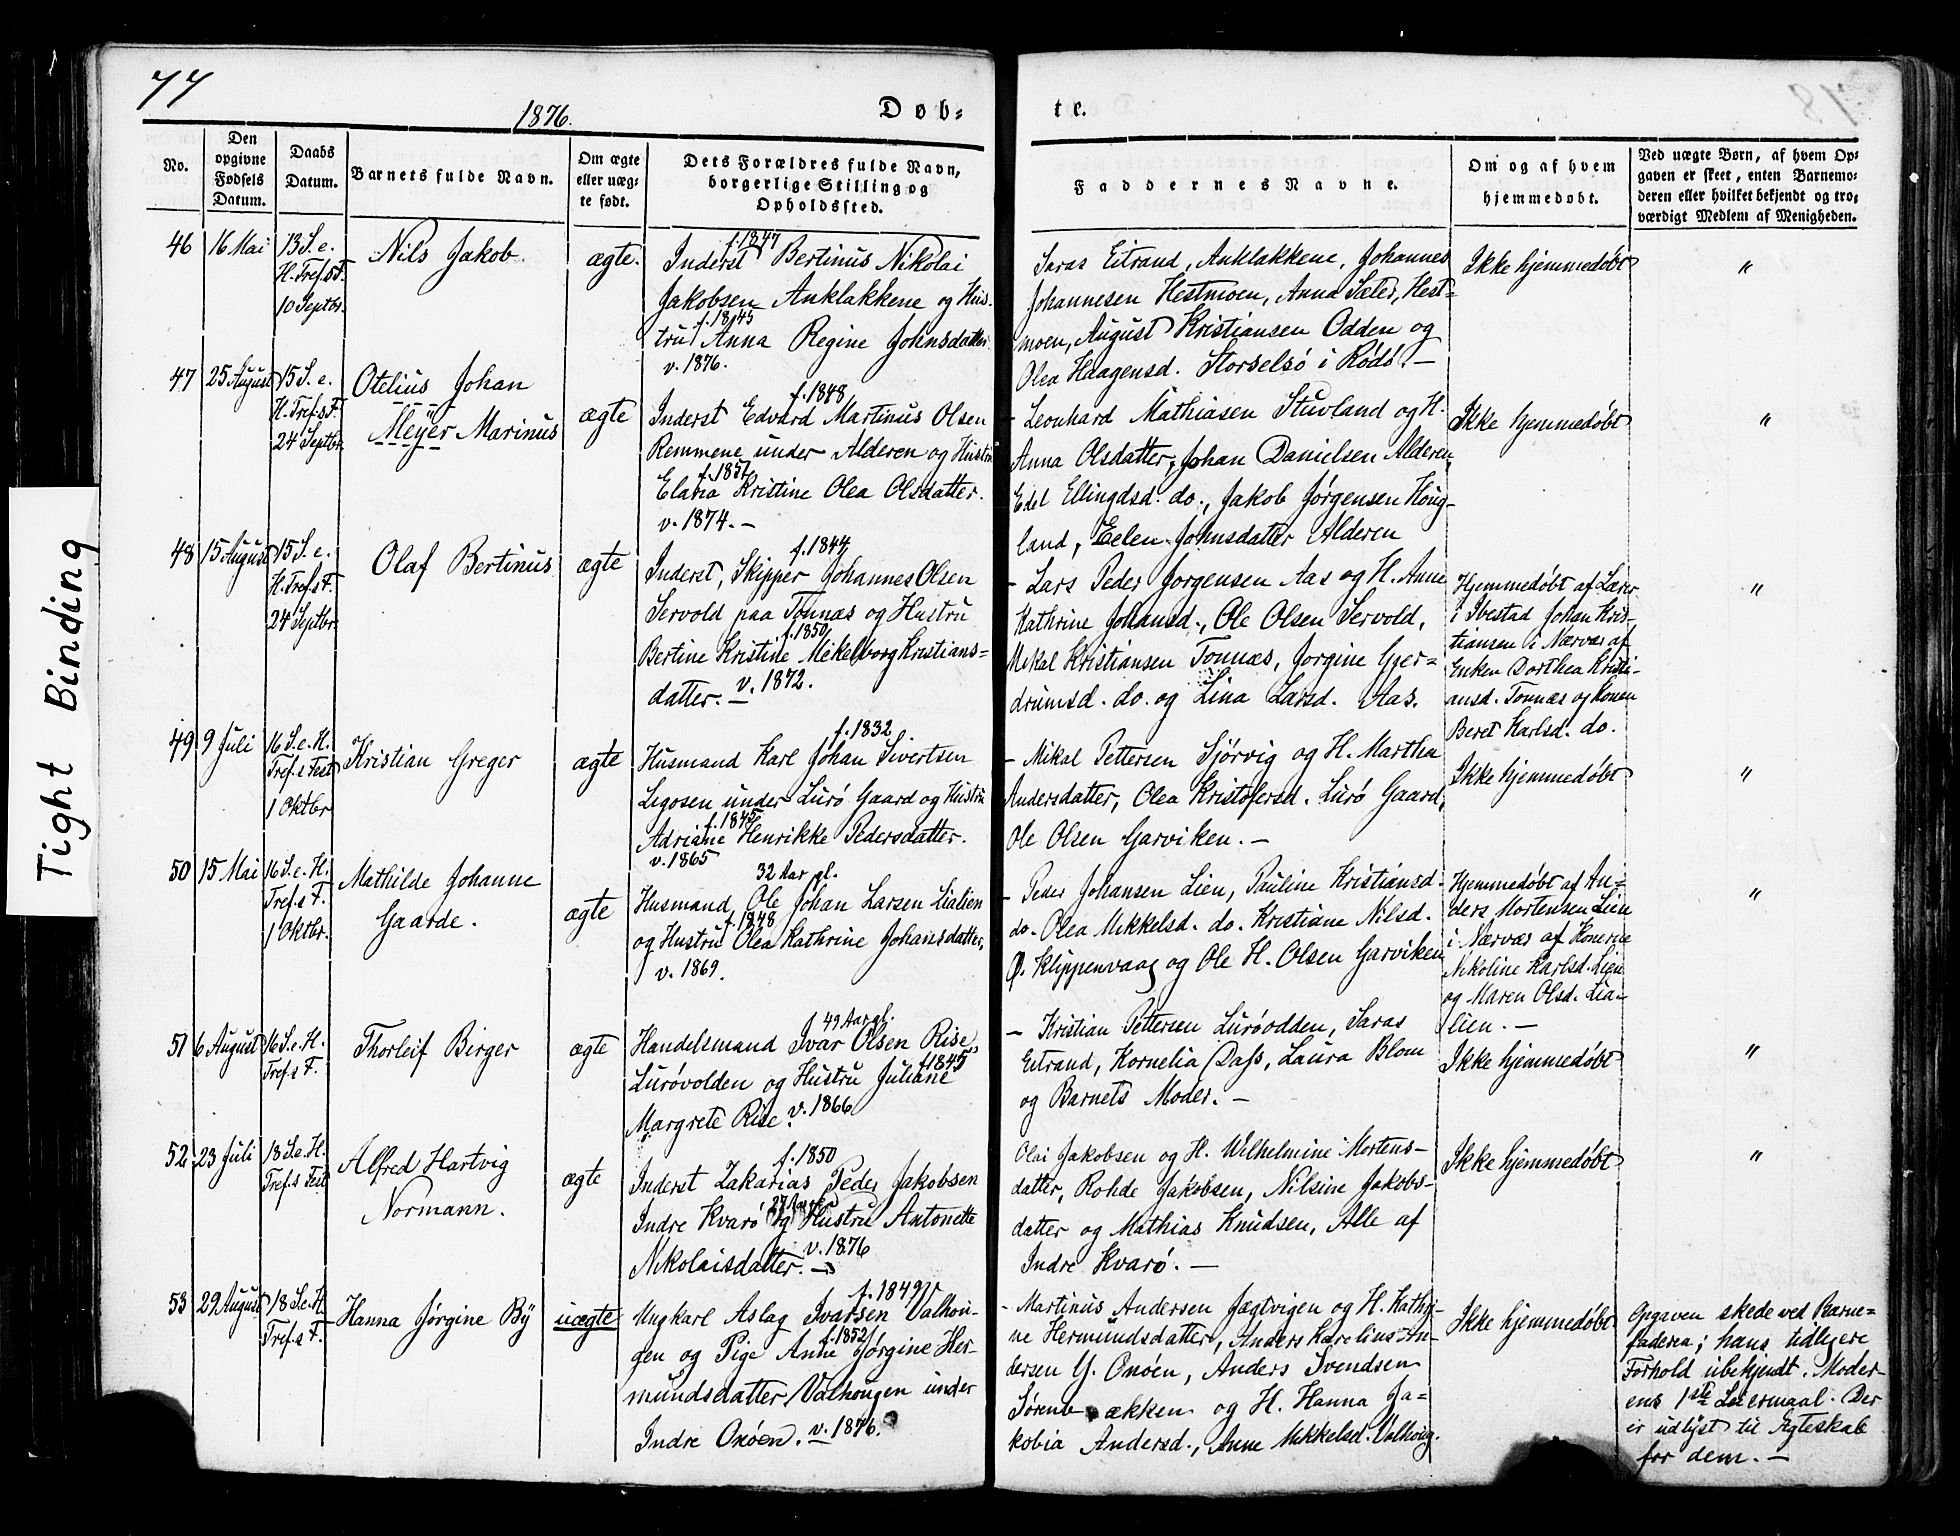 77
1876.
Døb=
te.
No.
Den opgivne Fødsels Datum.
Daabs Datum.
Barnets fulde Navn.
Om ægte eller uæg-te født.
Dets Forældres fulde Navn, borgerlige Stilling og Opholdssted.
Faddernes Navne.
Om og af hvem hjemmedøbt.
Ved uægte Børn, af hvem Op-gaven er skeet, enten Barnemo-deren eller hvilket bekjendt og tro-værdigt Medlem af Menigheden.
46
16 Mai
13 S. e.
H. Tref.s F.
10 Septbr.
Nils Jakob.
ægte.
f. 1847
Inderst Bertinus Nikolai
Jakobsen Anklakkene og Hus-
f. 1845
tru Anna Regine Johnsdatter
v. 1876.
Saras Eitrand, Anklakkene, Johannes
Johannesen Hestmoen, Anna Sæter, Hest=
moen, August Kristiansen Odden og
Olea Haagensd. Storselsö i Rödö. —
Ikke hjemmedøbt
"
47
25 August
15 S. e.
H. Tref.s F.
24 Septbr.
Otelius Johan
Meÿer Marinus
ægte
f. 1848
Inderst Edvard Martinus Olsen
Remmene under Alderen og Hustru
f. 1851
Elaria Kristine Olea Olsdatter.
v. 1874. —
- Leonhard Mathiasen Stuvland og H.
Anna Olsdatter, Johan Danielsen Alderen,
Edel Ellingsd. do., Jakob Jørgensen Houg-
land, Eelen Johnsdatter Alderen
Ikke hjemmedøbt
"
48
15 August
15 S. e.
H. Tref.s F.
24 Septbr.
Olaf Bertinus
ægte
f. 1844
Inderst, Skipper Johannes Olsen
Servold paa Tonnæs og Hustru
f. 1850
Bertine Kristine Mekelborg Kristians=
datter. — v. 1872.
- Lars Peder Jørgensen Aas og H. Anne
Kathrine Johansd., Ole Olsen Servold,
Mikal Kristiansen Tonnæs, Jørgine Gjer=
drumsd. do. og Lina Larsd. Aas.
Hjemmedøbt af Lærer
i Ibestad Johan Kris-
tiansen i Nærvær af
Enken Dorthea Kristi-
ansd. Tonnæs og Konen
Beret Karlsd. do.
"
49
9 Juli
16 S. e. H.
Tref.s Fest
1 Oktbr
Kristian Greger
ægte
f. 1832.
Husmand Karl Johan Sivertsen
Legosen under Lurö Gaard og Hustru
f. 1845
Adriane Henrikke Pedersdatter.
v. 1865
- Mikal Pettersen Sjörvig og H. Martha
Andersdatter, Olea Kristofersd. Lurö Gaard,
Ole Olsen Garviken. —
Ikke hjemmedøbt
"
50
15 Mai
16 S. e. H.
Tref.s F.
1 Oktbr.
Mathilde Johanne
Gaarde.
ægte
32 Aar gl.
Husmand Ole Johan Larsen Lialien
f. 1848
og Hustru Olea Kathrine Johansdatter,
v. 1869.
- Peder Johansen Lien, Pauline Kristiansd.
do. Olea Mikkelsd. do. Kristiane Nilsd.
Ø. Klippenvaag og Ole H. Olsen Garviken
Hjemmedøbt af An-
ders Mortensen Lien
i Nærvær af Konerne
Nikoline Karlsd. Lien
og Maren Olsd. Lia-
lien. —
"
51
6 August
16 S. e. H.
Tref.s F.
Thorleif Birger
ægte
49 Aar gl.
Handelsmand Ivar Olsen Rise,
f. 1845
Lurövolden og Hustru Juliane
Margrete Rise. v. 1866
- Kristian Pettersen Luröodden, Saras
Eitrand, Kornelia Dass, Laura Blom
og Barnets Moder. —
Ikke hjemmedøbt
"
52
23 Juli
18 S. e. H.
Tref.s Fest
Alfred Hartvig
Normann.
ægte
f. 1850
Inderst Zakarias Peder Jakobsen
27 Aar
Indre Kvarö og Hustru Antonette
v. 1876
Nikolaisdatter. —
Olai Jakobsen og H. Wilhelmine Mortens-
datter, Rohde Jakobsen, Nilsine Jakobs-
datter og Mathias Knudsen, Alle af
Indre Kvarö. —
Ikke hjemmedøbt
"
53
29 August
18 S. e. H.
Tref.s F.
Hanna Jørgine Bÿ
uægte
f. 1849
Ungkarl Aslag Ivarsen Valhou-
f. 1852
gen og Pige Anne Jørgine Her-
mundsdatter, Valhougen under
Indre Onöen. v. 1876.
- Martinus Andersen Jægtvigen og H. Kathri-
ne Hermundsdatter, Anders Karelius An-
dersen Y. Onöen, Anders Svendsen
ækken og H. Hanna Ja-
kobia Andersd., Anne Mikkelsd. Valhoug.
Ikke hjemmedøbt
Opgaven skede ved Barne=
faderen; hans tidligere
Forhold ubekjendt. Moder-
ens 1ste Leiermaal. Der
er udlyst til Ægteskab
for dem. —
Tight Binding